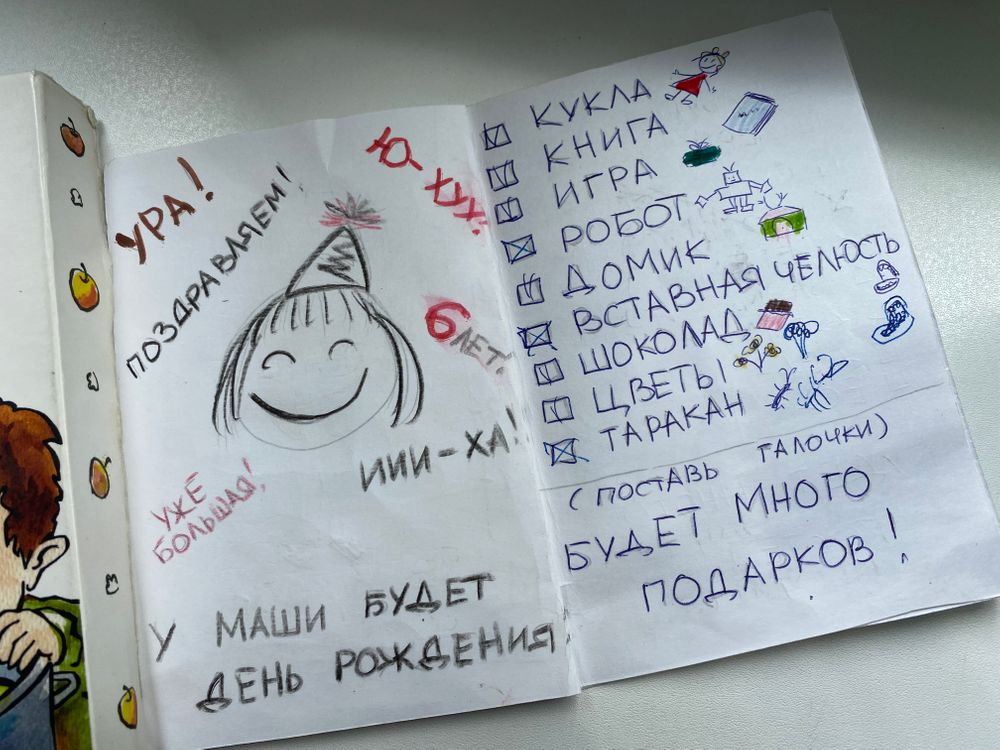 УРА!
ПОЗДРАВЛЯЕМ!
Ю-ХУХ!
6 ЛЕТ!
ИИИ-ХА!
УЖЕ
БОЛЬШАЯ!
У МАШИ БУДЕТ
ДЕНЬ РОЖДЕНИЯ
КУКЛА
КНИГА
ИГРА
РОБОТ
ДОМИК
ВСТАВНАЯ ЧЕЛЮСТЬ
ШОКОЛАД
ЦВЕТЫ
ТАРАКАН
(ПОСТАВЬ ГАЛОЧКИ)
БУДЕТ МНОГО
ПОДАРКОВ!